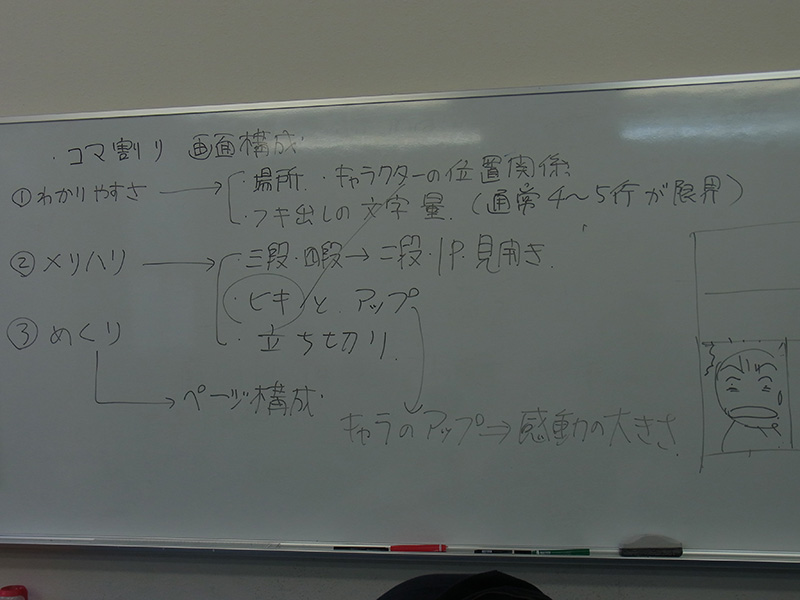 ・コマ割り 画面構成
①わかりやすさ → ・場所 ・キャラクターの位置関係
・フキ出しの文字量 (通常4〜5行が限界)
②メリハリ → ・三段・四段→二段・1P・見開き
・ヒキとアップ
・立ち切り
③めくり
→ ページ構成
キャラのアップ⇒感動の大きさ